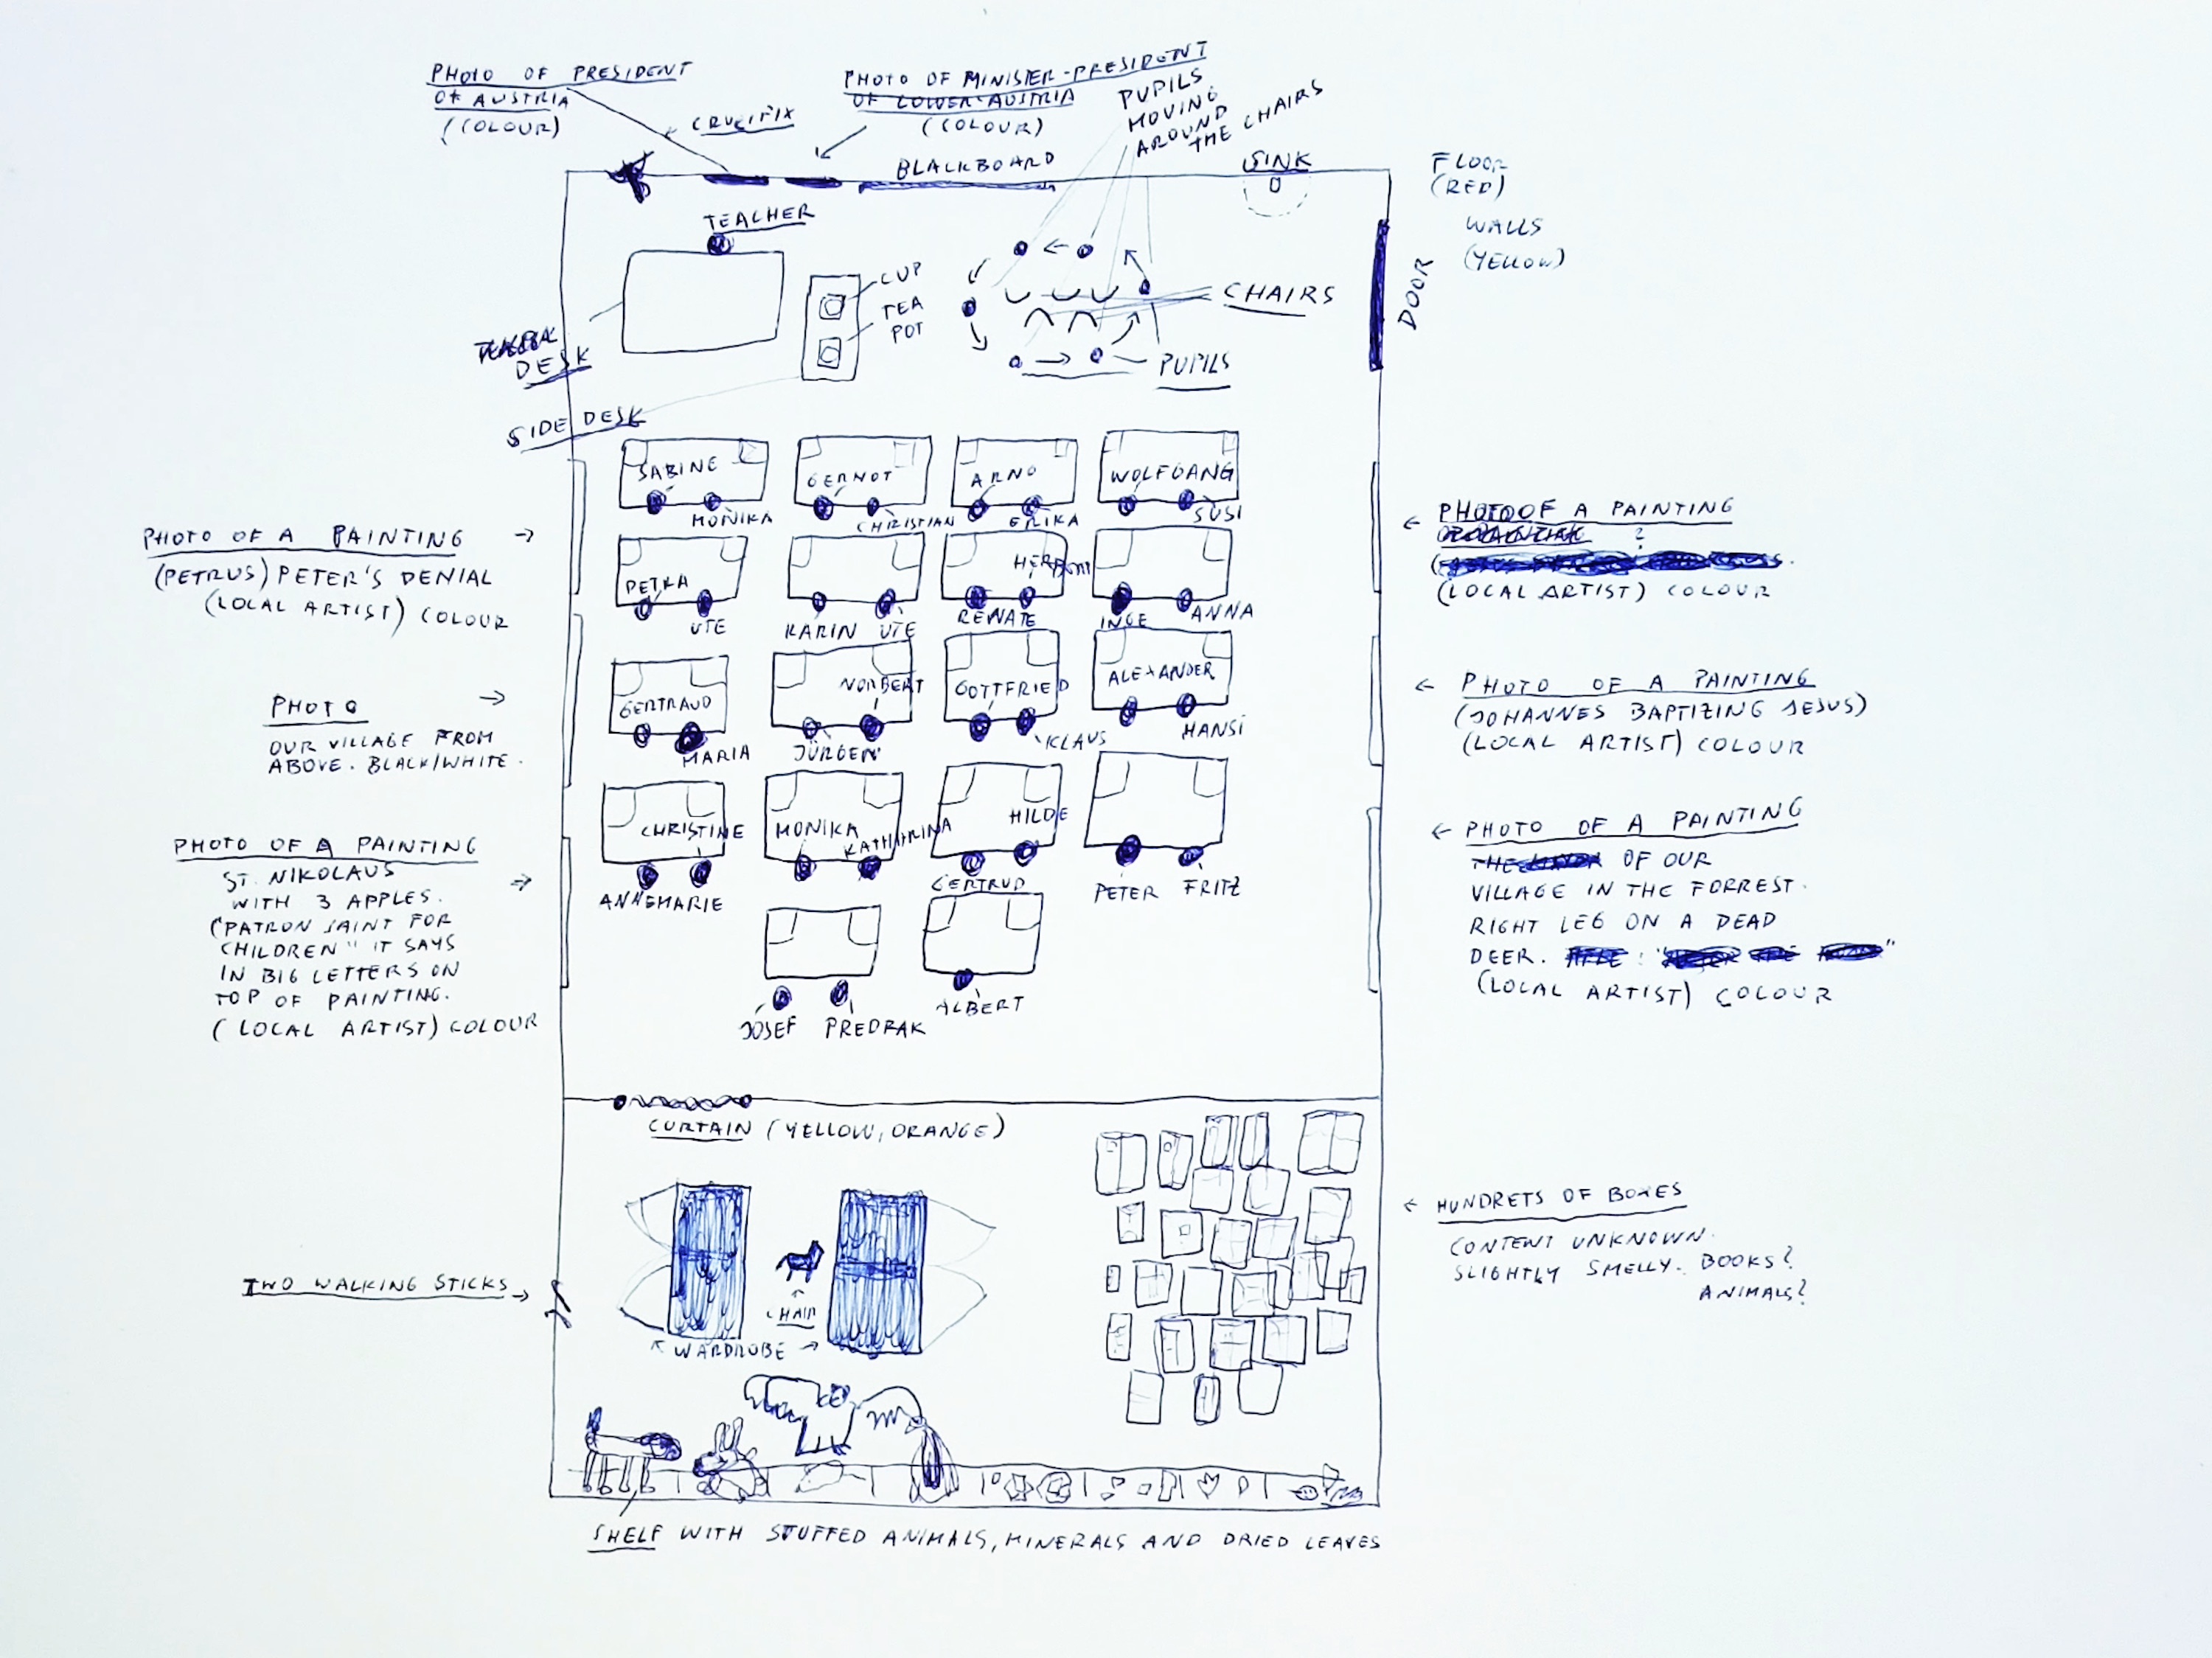 PHOTO OF PRESIDENT
OF AUSTRIA
(COLOUR)
CRUCIFIX
PHOTO OF MINISTER-PRESIDENT
OF LOWER-AUSTRIA
(COLOUR)
PUPILS
MOVING
AROUND
THE CHAIRS
BLACKBOARD
SINK
FLOOR
(RED)
WALLS
(YELLOW)
DOOR
TEACHER
CUP
TEA
POT
CHAIRS
PUPILS
DESK
SIDE DESK
SABINE
MONIKA
GERNOT
CHRISTIAN
ARNO
ERIKA
WOLFGANG
SUSI
PETRA
UTE
KARIN UTE
RENATE
INGE
ANNA
GERTRAUD
MARIA
NORBERT
JÜRGEN
GOTTFRIED
KLAUS
ALEXANDER
HANSI
CHRISTINE
ANNEMARIE
MONIKA
KATHARINA
HILDE
GERTRUD
PETER FRITZ
JOSEF PREDRAK
ALBERT
PHOTO OF A PAINTING
(PETRUS) PETER'S DENIAL
(LOCAL ARTIST) COLOUR
PHOTO
OUR VILLAGE FROM
ABOVE. BLACK/WHITE.
PHOTO OF A PAINTING
ST. NIKOLAUS
WITH 3 APPLES.
("PATRON SAINT FOR
CHILDREN" IT SAYS
IN BIG LETTERS ON
TOP OF PAINTING.
(LOCAL ARTIST) COLOUR
PHOTO OF A PAINTING
?
(LOCAL ARTIST) COLOUR
PHOTO OF A PAINTING
(JOHANNES BAPTIZING JESUS)
(LOCAL ARTIST) COLOUR
PHOTO OF A PAINTING
OF OUR
VILLAGE IN THE FORREST.
RIGHT LEG ON A DEAD
DEER.
(LOCAL ARTIST) COLOUR
CURTAIN (YELLOW, ORANGE)
HUNDRETS OF BOXES
CONTENT UNKNOWN.
SLIGHTLY SMELLY. BOOKS?
ANIMALS?
TWO WALKING STICKS
CHAIR
WARDROBE
SHELF WITH STUFFED ANIMALS, MINERALS AND DRIED LEAVES